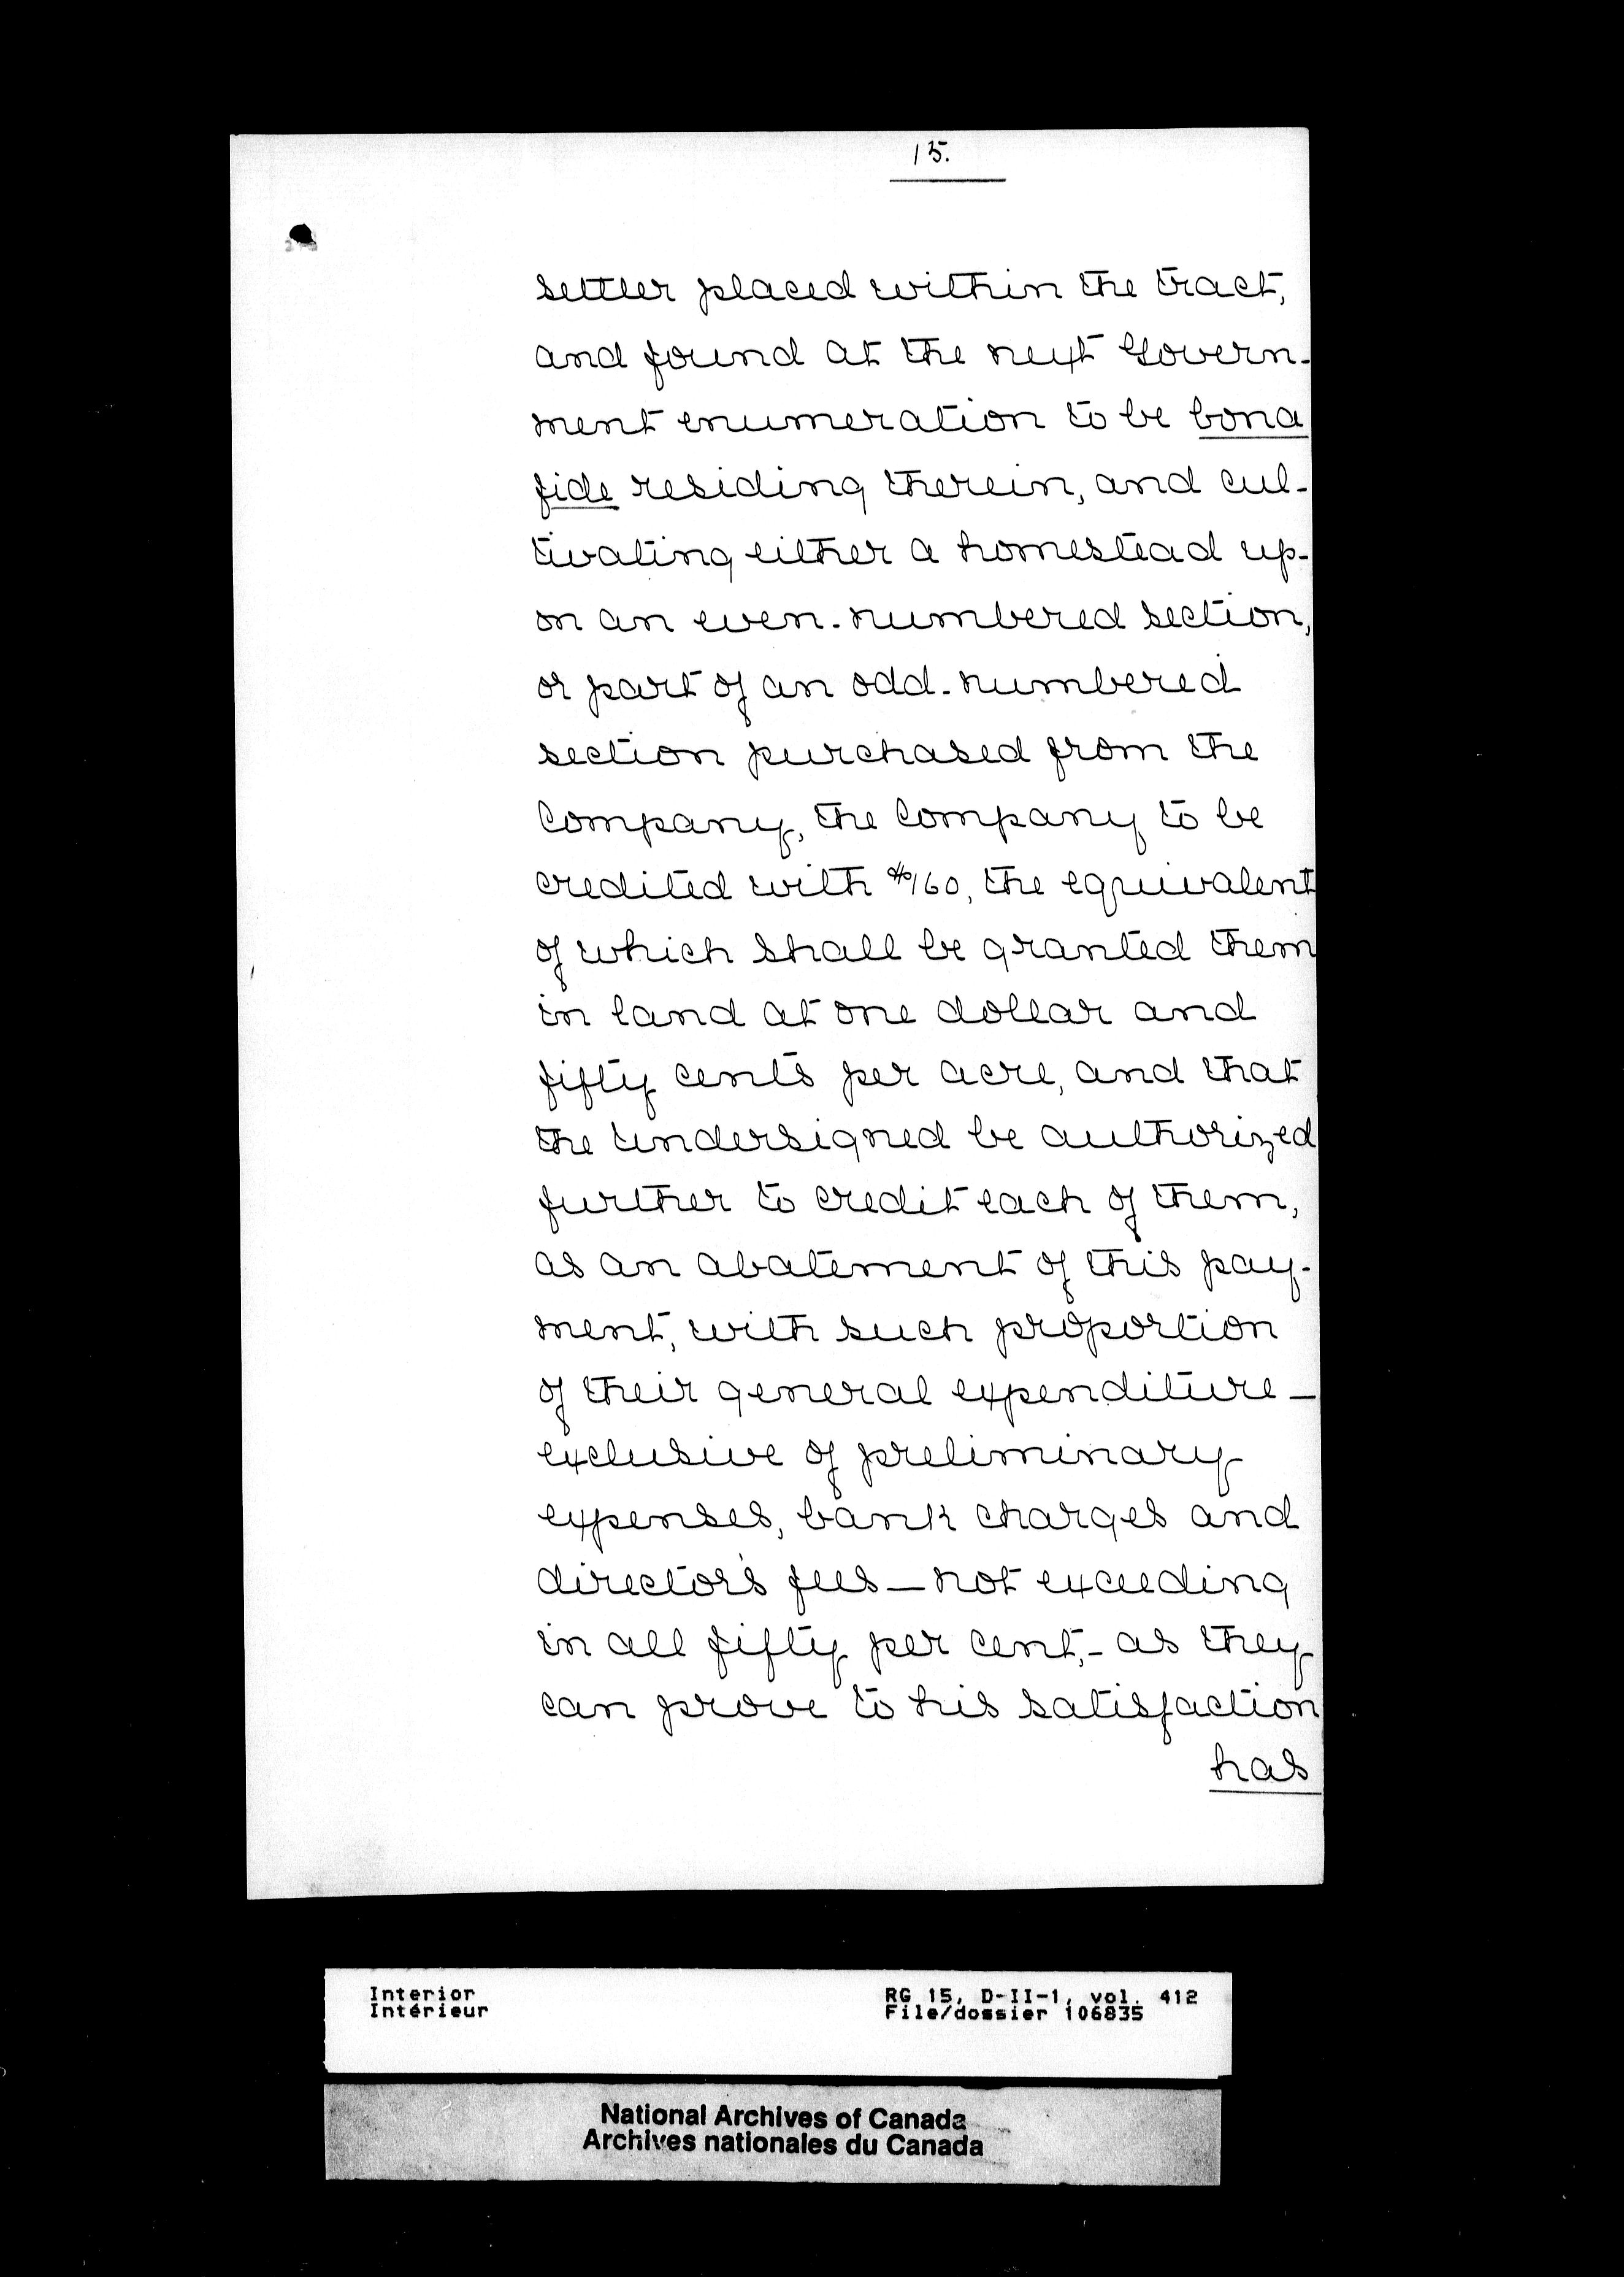 15.
settler placed within the tract,
and found at the next Govern-
ment enumeration to be bona
fide residing therein, and cul-
tivating either a homestead up-
on an even-numbered section,
or part of an odd-numbered
section purchased from the
Company, the Company to be
credited with $160, the equivalent
of which shall be granted them
in land at one dollar and
fifty cents per acre, and that
the undersigned be authorized
further to credit each of them,
as an abatement of this pay-
ment, with such proportion
of their general expenditure—
exclusive of preliminary
expenses, bank charges and
director's fees—not exceeding
in all fifty per cent,- as they
can prove to his satisfaction
has
Interior RG 15, D-II-1, vol. 412
Intérieur File/dossier 106835
National Archives of Canada
Archives nationales du Canada